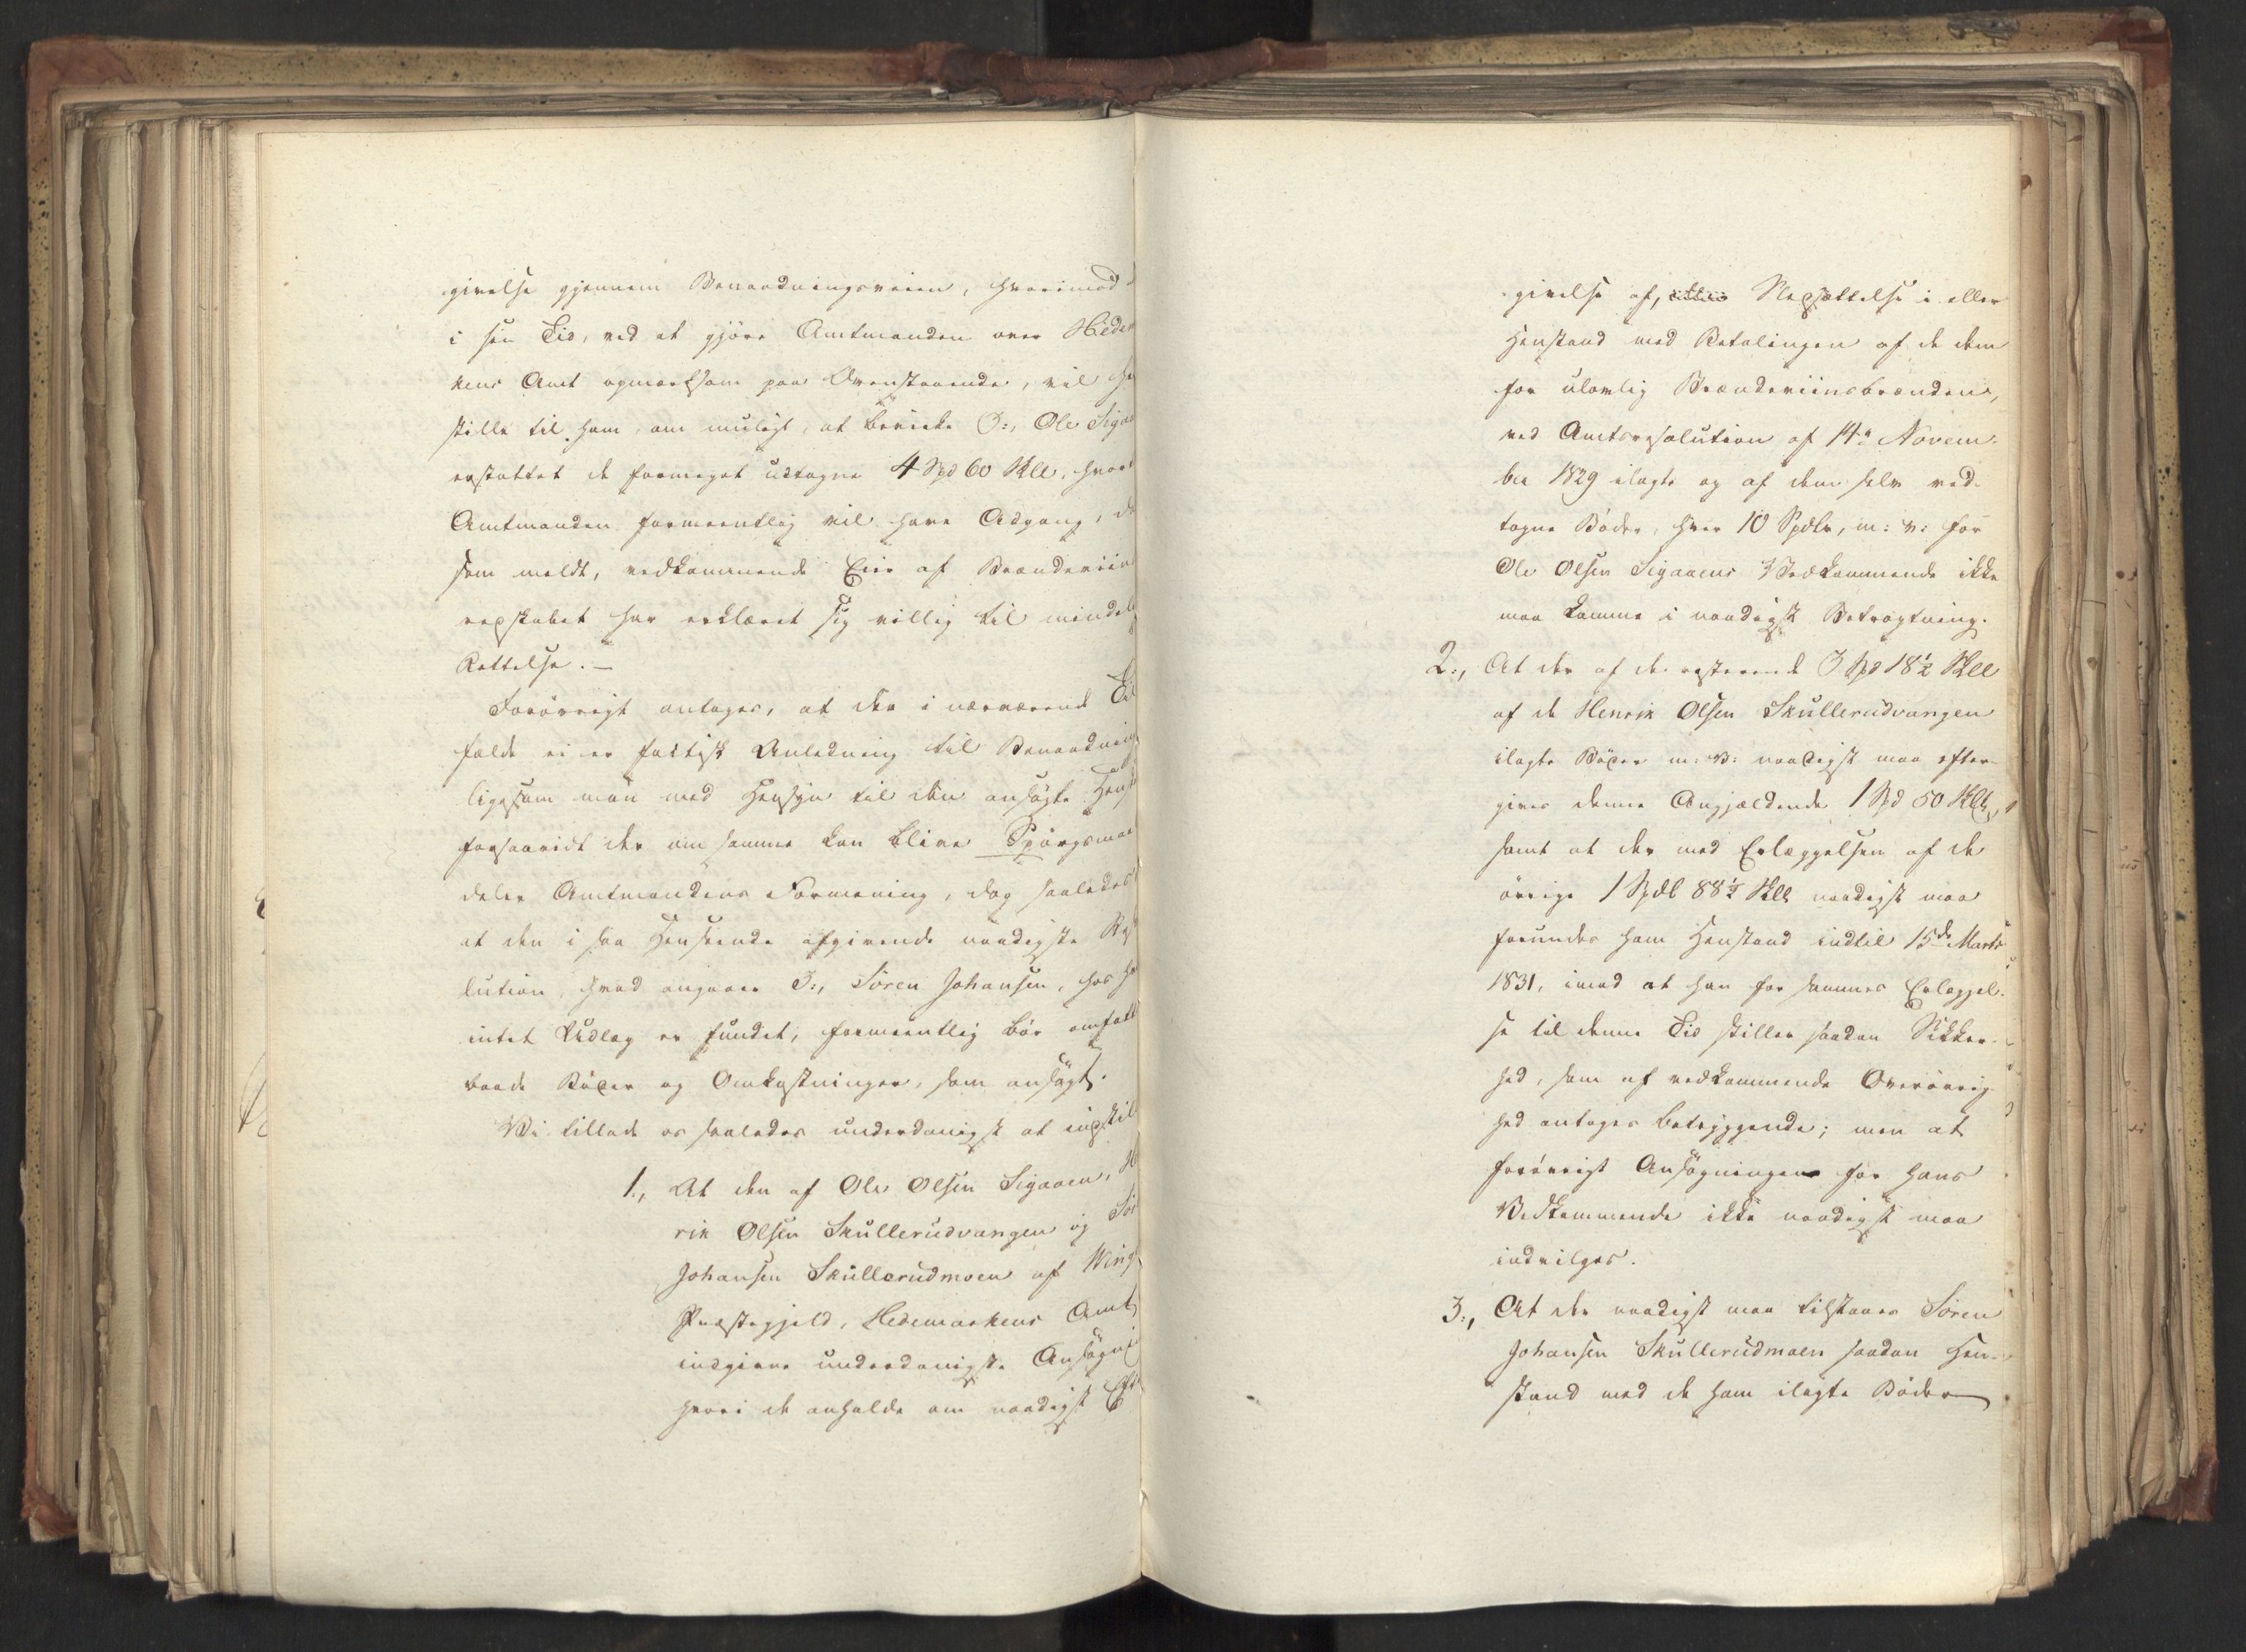 givelse gjennem Benaadningsveien, hvorimod
i sin Tid, ved at gjöre Amtmanden over Hedem
kens Amt opmærksom paa Ovenstaaende, vil
stille til ham, om muligt, at bevirke O:, Ole Sigaa
erstattet de formeget udtagne 4 Spd 60 Skll, hvor
Amtmanden formeentlig vil have Adgang, d
som meldt, vedkommende Eier af Brændeviin
redskabet har erklæret sig villig til mindel
Rettelse. —
Forövrigt antages, at der i nærværende Til
fælde ei er factisk Anledning til Benaadning
ligesom man med Hensyn til den ansögte Hens
forsaavidt der om samme kan blive Spörgsmaa
deler Amtmandens Formening, dog saaledes
at den i saa Henseende afgivende naadigste Res
lution, hvad angaaer S:, Sören Johansen, hos h
intet Udlæg er fundet, formeentlig bör omfatt
baade Böder og Omkostninger, som ansögt.
Vi tillade os saaledes underdanigst at indstil
1:, At den af Ole Olsen Sigaaen, H
rik Olsen Skullerudvangen og Sör
Johansen Skullerudmoen af Wing
Præstegjeld, Hedemarkens Amt
indgivne underdanigste Ansögni
hvori de anholde om naadigst Eft
givelse af, Nedsættelse i eller
Henstand med Betalingen af de dem
for ulovlig Brændeviinsbrænden,
ved Amtsresolution af 14de Novem-
ber 1829 ilagte og af dem selv ved-
tagne Böder, hver 10 Spdlr, m: v: for
Ole Olsen Sigaaens Vedkommende ikke
maa komme i naadigst Betragtning.
2:, At der af de resterende 3 Spd 18½ Skll
af de Henrik Olsen Skullerudvangen
ilagte Böder m: v: naadigst maa efter-
gives denne Angjældende 1 Spd 50 Skll,
samt at der med Erlæggelsen af de
övrige 1 Spdl 88½ Skll naadigst maa
forundes ham Henstand indtil 15de Marts
1831, imod at han for sammes Erlæggel-
se til denne Tid stiller saadan Sikker-
hed, som af vedkommende Overövrig-
hed antages betryggende; men at
forövrigt Ansögningen for hans
Vedkommende ikke naadigst maa
indvilges.
3:, At der naadigst maa tilstaaes Sören
Johansen Skullerudmoen saadan Hen-
stand med de ham ilagte Böder